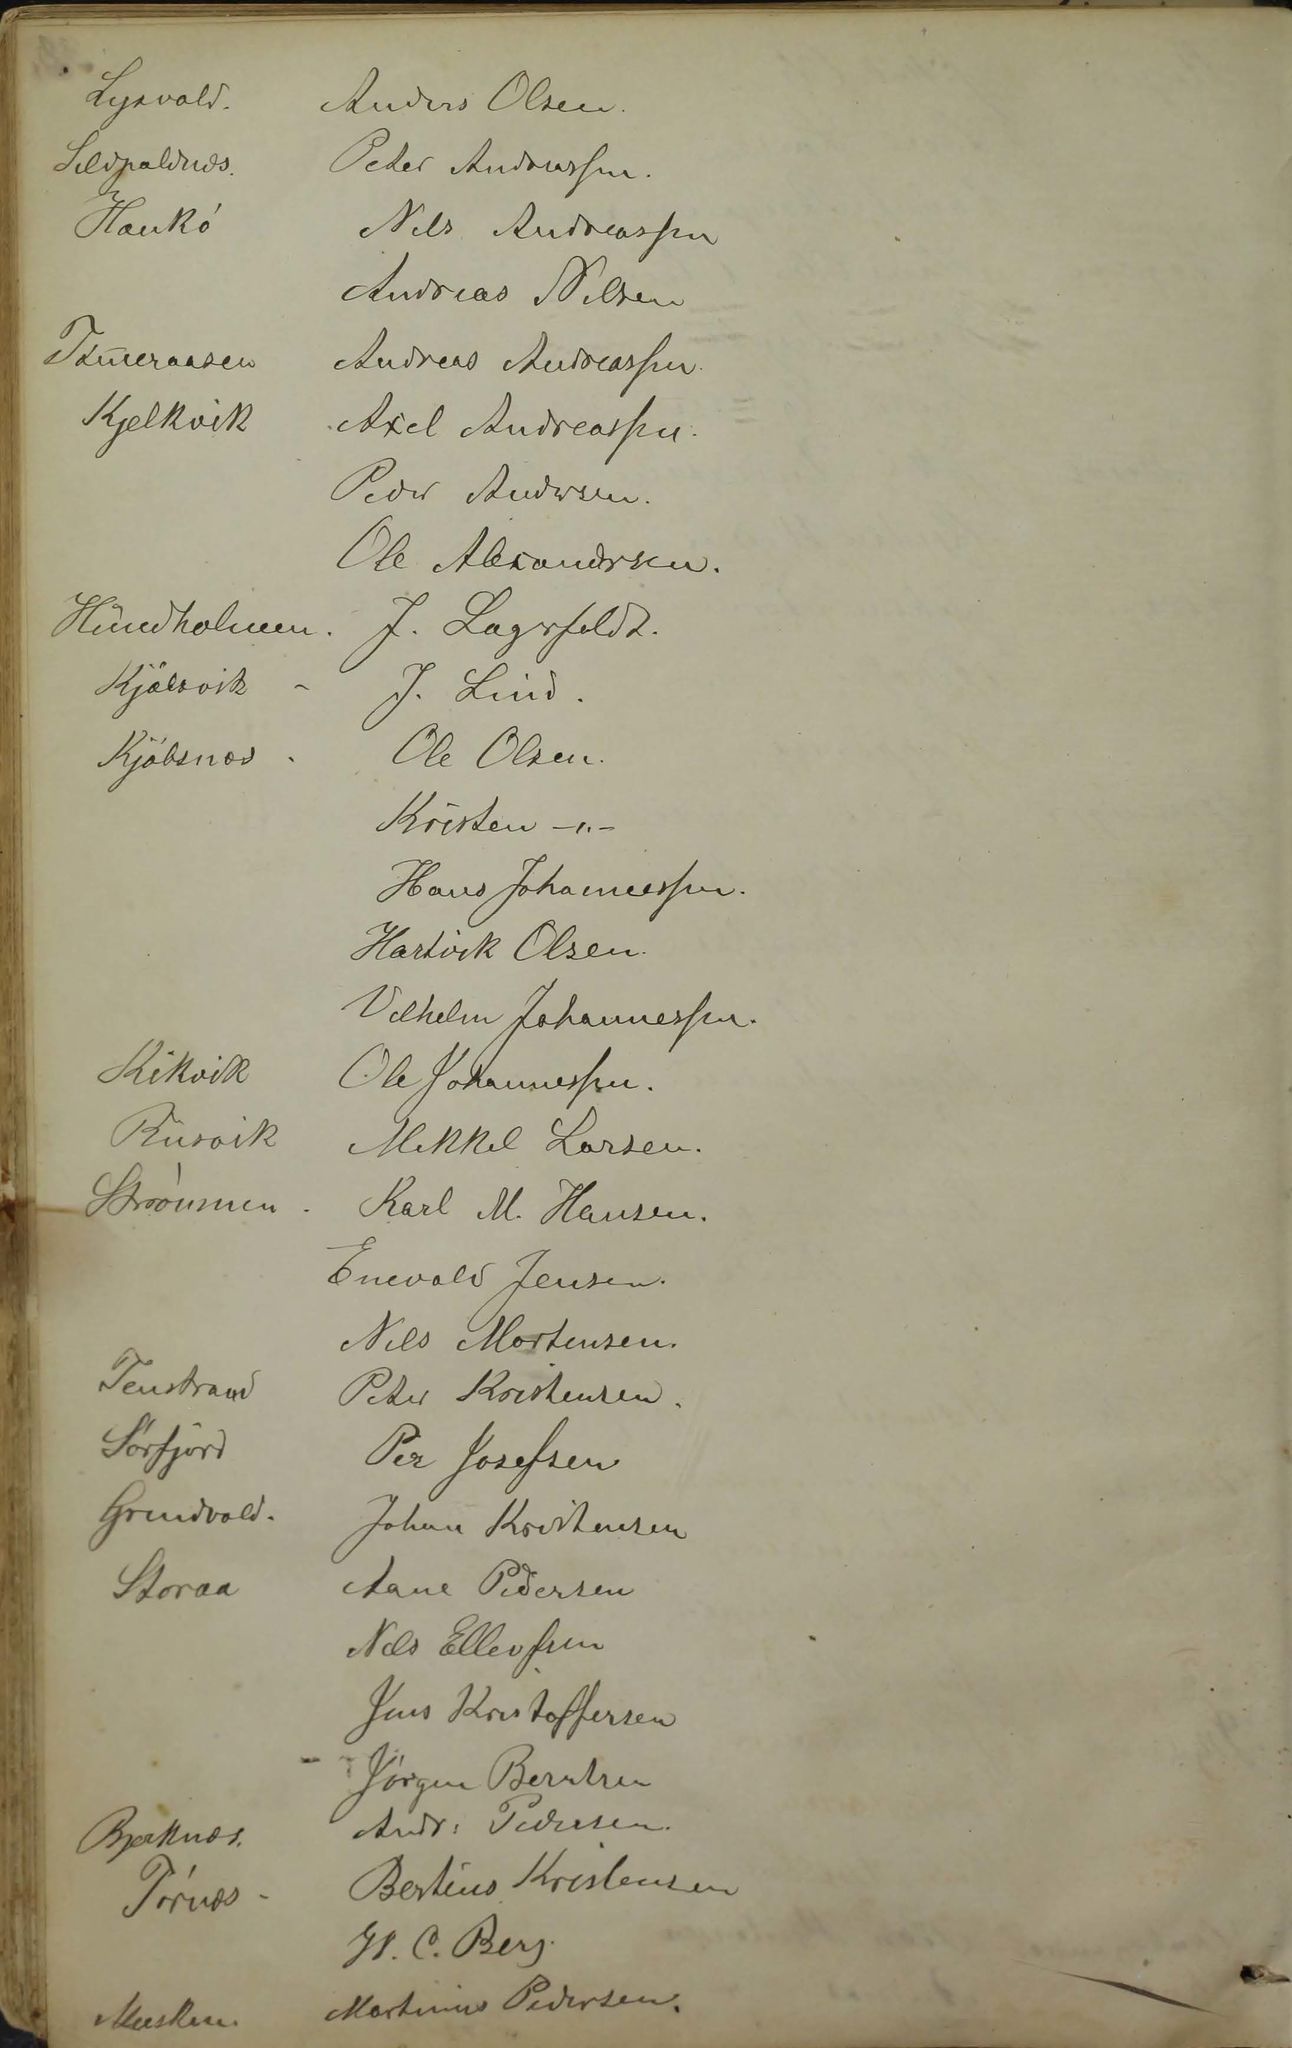 Lysvold. Anders Olsen.
Sildpoldnæs. Peter Andreassen.
Haukö Nils Andreassen
Andreas Nilsen
Tømeraasen Andreas Andreassen.
Kjelkvik Axel Andreassen.
Peder Andersen.
Ole Alexandersen.
Hundholmen. J. Lagerfeldt.
Kjölsvik - J. Lind.
Kjöbsnæs. Ole Olsen.
Kristen -"-
Hans Johannessen.
Hartvik Olsen.
Vilhelm Johannessen.
Kikvik Ole Johannessen.
Rusvik Mikkel Larsen.
Strömmen. Karl M. Hansen.
Enevold Jensen.
Nils Mortensen.
Tenstrand Peter Kristensen.
Sörfjord Per Josefsen
Grundvold. Johan Kristensen
Storaa Aane Pedersen
Nils Ellevsen
Jens Kristoffersen
Jörgen Berntsen
Bjerknæs. Andr: Pedersen.
Törnæs - Bertius Kristensen
H. C. Berg.
Musken. Martinus Pedersen.